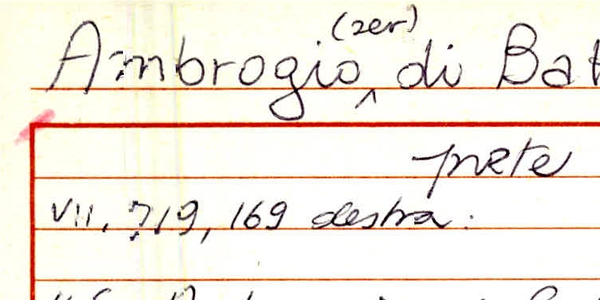 Ambrogio (zer) di Bat
prete
VII, 719, 169 destra: